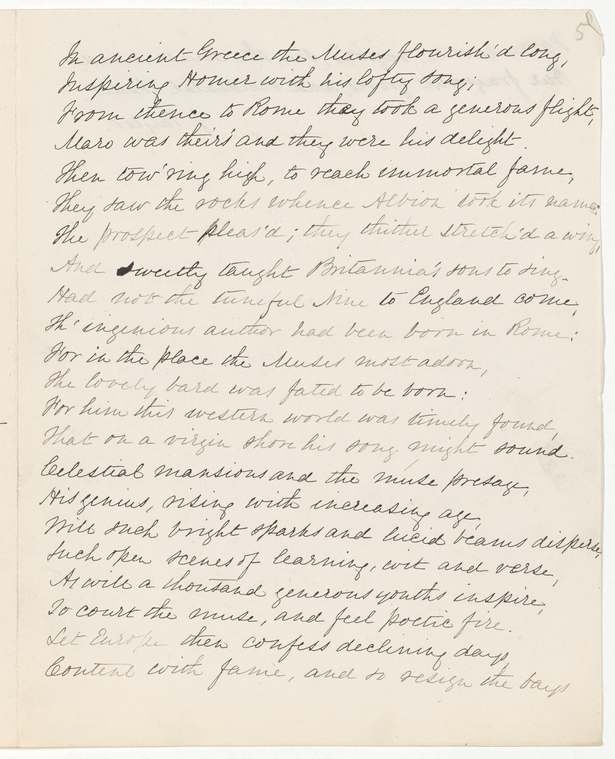 5
In ancient Greece the Muses flourish'd long,
Inspiring Homer with his lofty song;
From thence to Rome they took a generous flight,
Maro was their's and they were his delight.
Then tow'ring high, to reach immortal fame,
They saw the rocks whence Albion took its name:
The prospect pleas'd; they thither stretch'd a wing,
And sweetly taught Britannia's sons to sing.
Had not the tuneful Nine to England come,
Th' ingenious author had been born in Rome:
For in the place the Muses most adorn,
The lovely bard was fated to be born:
For him this western world was timely found,
That on a virgin shore his song might sound.
Celestial mansions and the muse presage,
His genius, rising with increasing age,
Will such bright sparks and lucid beams disperse,
Such open scenes of learning, wit and verse,
As will a thousand generous youths inspire,
To court the muse, and feel poetic fire.
Let Europe then confess declining days,
Content with fame, and so resign the bays